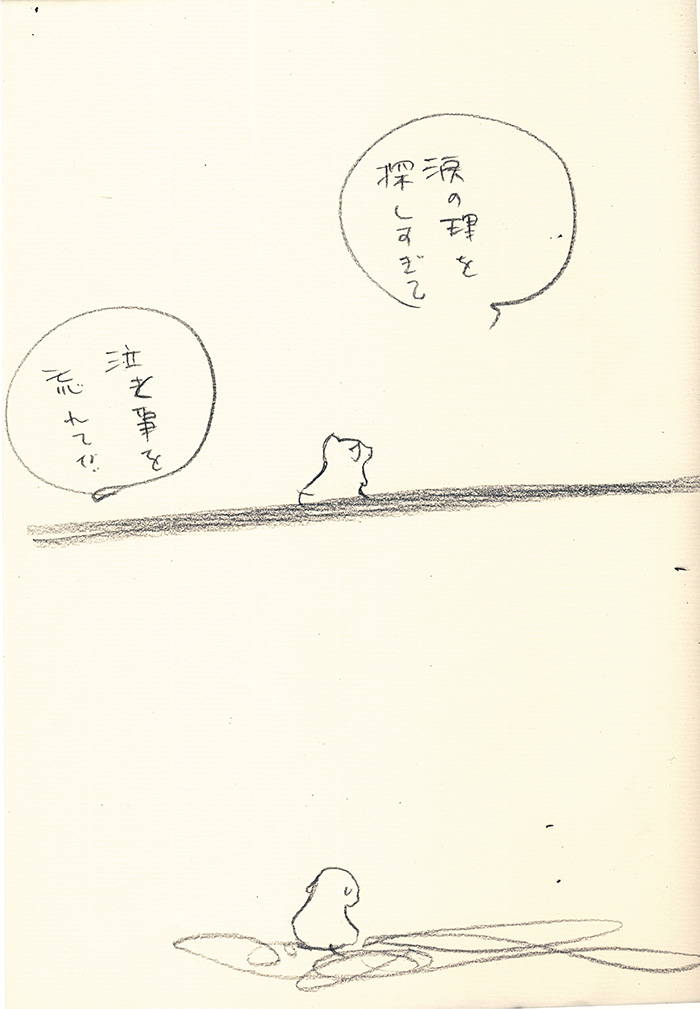 涙の理を
探しすぎて
泣く事を
忘れてた